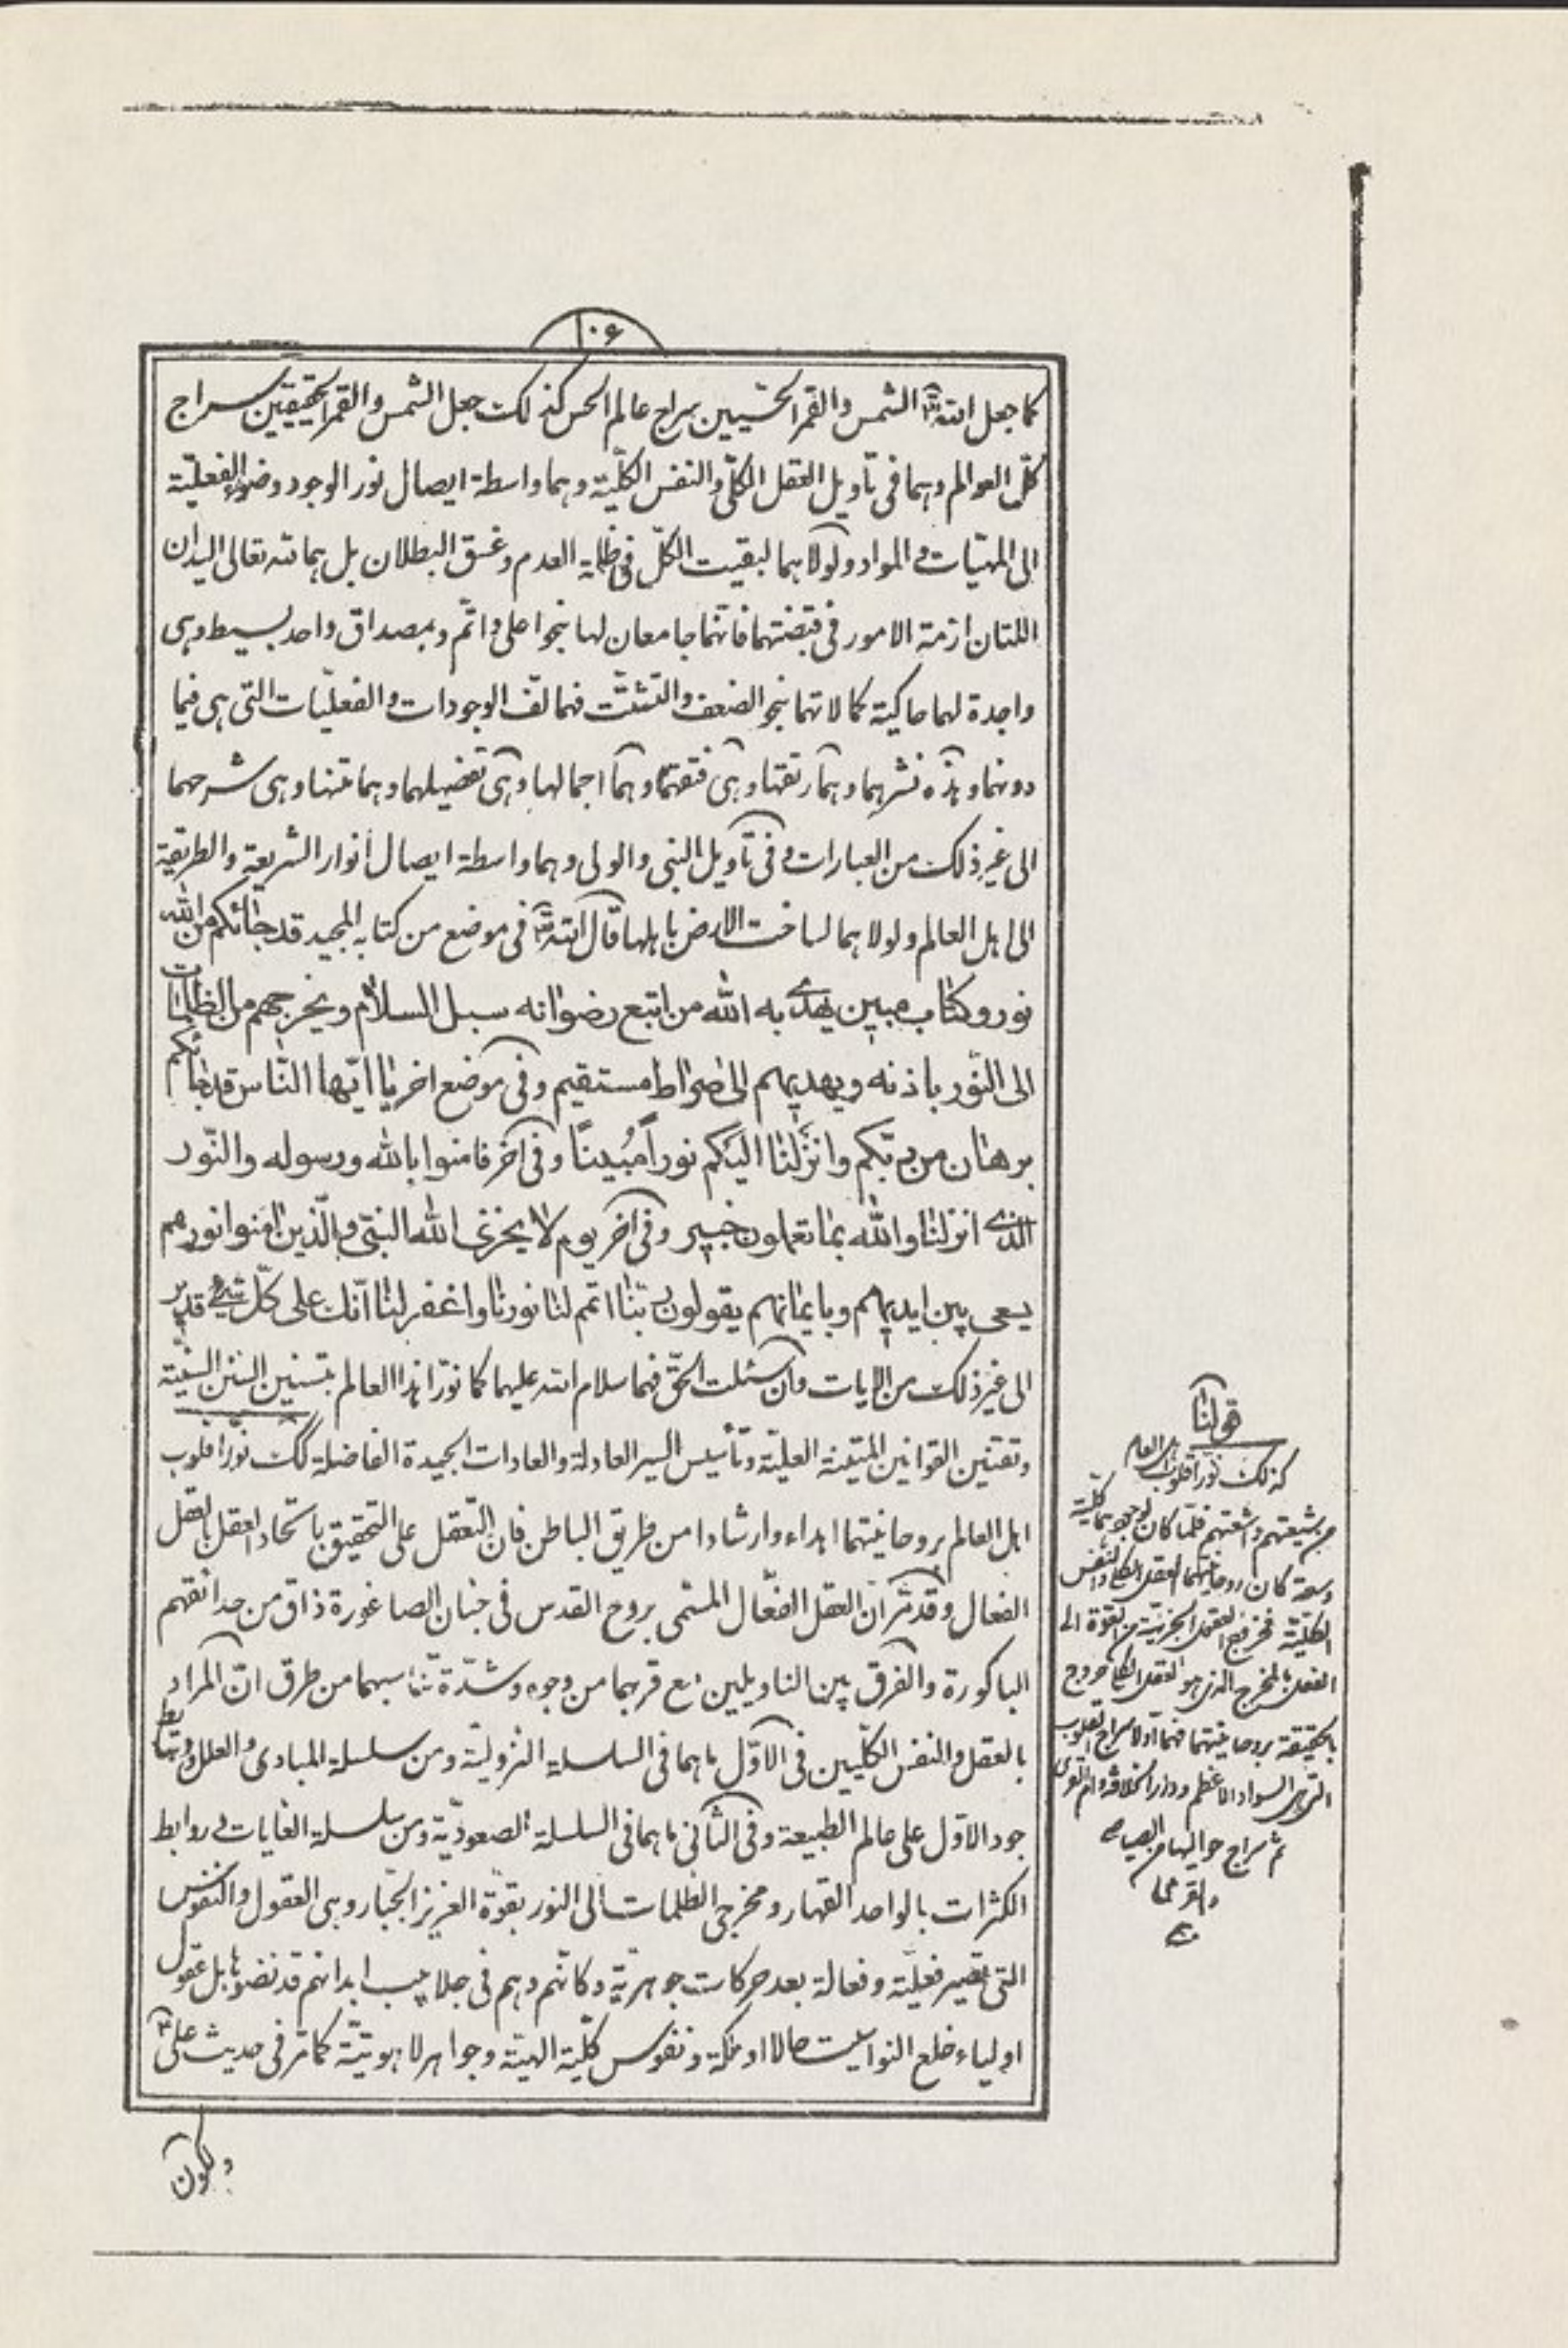 ۱۰۶
كما جعل الله تع الشمس والقمر الحسّيين سراج عالم الحس كذلك جعل الشمس والقمر الحقيقيين سراج
كلّ العوالم وهما فى تأويل العقل الكلّى والنفس الكلّية وهما واسطة ايصال نور الوجود وضوء الفعليّة
الى المهيّات والمواد ولولا هما لبقيت الكلّ فى ظلمة العدم وغسق البطلان بل هما لله تعالى اليدان
اللتان ازمة الامور فى قبضتهما فانّهما جامعان لها بنحو اعلى واتّم وبمصداق واحد بسيط وهى
واجدة لهما حاكية كمالاتهما بنحو الضعف والتشتّت فهما لفّ الوجودات والفعليّات التى هى فيما
دونهما وهذه نشرهما وهما رتقها وهى فتقهما وهما اجمالها وهى تفصيلهما وهما متنها وهى شرحهما
الى غير ذلك من العبارات وفى تأويل النبى والولى وهما واسطة ايصال أنوار الشريعة والطريقة
الى اهل العالم ولولا هما لساخت الارض باهلها قال الله تع فى موضع من كتابه المجيد قد جائكم من الله
نور وكتاب مبين يهدى به الله من اتبع رضوانه سبل السلام ويخرجهم من الظلمات
الى النّور باذنه ويهديهم الى صراط مستقيم وفى موضع اخر يا ايّها النّاس قد جائكم
برهان من ربّكم وانزلنا اليكم نوراً مُبيناً وفى آخر فامنوا بالله ورسوله والنّور
الذى انزلنا والله بما تعملون خبير وفى آخر يوم لا يخزى الله النبىّ والّذين امنوا نورهم
يسعى بين ايديهم وبايمانهم يقولون ربّنا اتمم لنا نورنا واغفر لنا انّك على كلّ شىء قدير
الى غير ذلك من الايات وان سئلت الحقّ فهما سلام الله عليهما كما نوّرا هذا العالم بتسنين السنن السنيّة
وتقنين القوانين المتقنة العليّة وتأسيس السير العادلة والعادات الحميدة الفاضلة كك نوّرا قلوب
اهل العالم بروحانيتهما اهداء وارشادا من طريق الباطن فان التعقل على التحقيق باتحاد العقل بالعقل
الفعال وقد مّر انّ العقل الفعّال المسّمى بروح القدس فى جنان الصاغورة ذاق من حدائقهم
الباكورة والفرق بين التاويلين مع قربهما من وجوه وشدّة تناسبهما من طرق انّ المراد
بالعقل والنفس الكلّيين فى الاوّل ما هما فى السلسلة النزوليّة ومن سلسلة المبادى والعلل وروابط
جود الاوّل على عالم الطبيعة وفى الثانى ما هما فى السلسلة الصعوديّة ومن سلسلة الغايات وروابط
الكثرات بالواحد القهار ومخرجى الظلمات الى النور بقوّة العزيز الجبّار وهى العقول والنفوس
التى تصير فعليّة وفعالة بعد حركات جوهريّة وكانّهم وهم فى جلابيب ابدانهم قد نضوها بل عقول
اولياء خلع النواسيت حالا او ملكة ونفوس كلّية الهيّة وجواهر لاهوتيّة كما مّر فى حديث علىّ ع
ولكون
قولنا
كذلك نورا قلوب اهل العالم
من شيعتهم واشعتهم فلمّا كان لوجودهما كلّية
وسعة كان روحانيتهما العقل الكلى والنفس
الكلّيّة فخرج العقول الجزئيّة من القوّة الى
الفعل بالمخرج الذى هو العقل الكلى خروج
بالحقيقة بروحانيتهما فهما اوّلا سراج القلوب
التى هى السواد الاعظم ودار الخلافة وام القرى
ثم سراج حواليها من الصياصى
والقرى
منه